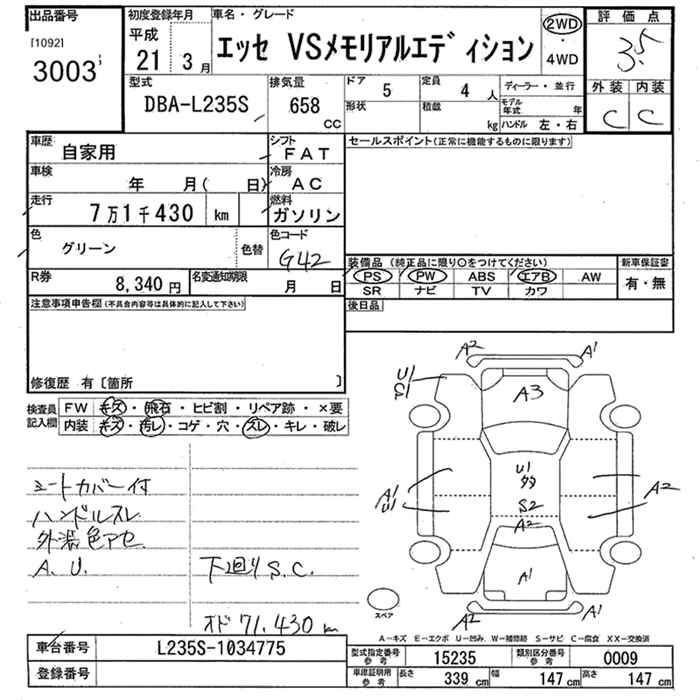 出品番号 初度登録年月 車名・グレード 評価点
[1092] 平成 エッセ VSメモリアルエディション 2WD 3.5
3003 21 3月 ・ 4WD
型式 排気量 ドア 5 定員 4人 ディーラー・並行 外装 内装
DBA-L235S 658 cc 形状 積載 kg モデル年式 年 C C
ハンドル 左・右
車歴 自家用 シフト FAT セールスポイント(正常に機能するものに限ります)
車検 年 月( 日) 冷房 AC
走行 7万1千430 km 燃料 ガソリン
色 グリーン 色替 色コード G42
装備品 (純正品に限り○をつけてください) 新車保証書
R券 8,340円 名変通知期限 月 日 PS PW ABS エアB AW 有・無
SR ナビ TV カワ
注意事項申告欄(不具合内容等は具体的に記入して下さい) 後日品
修復歴 有〔箇所 〕
検査員記入欄 FW キズ・飛石・ヒビ割・リペア跡・×要
内装 キズ・汚レ・コゲ・穴・スレ・キレ・破レ
A2 A1
U1 S1 A3
U1
A1 U1 S2 A2
A2
A1
A2 A1
シートカバー付
ハンドルスレ
外装色アセ
A.U. 下廻りS.C.
オド 71,430 km
スペア
A-キズ E-エクボ U-凹み W-補修跡 S-サビ C-腐食 XX-交換済
車台番号 L235S-1034775 型式指定番号 参考 15235 類別区分番号 参考 0009
登録番号 車庫証明用 参考 長さ 339 cm 幅 147 cm 高さ 147 cm